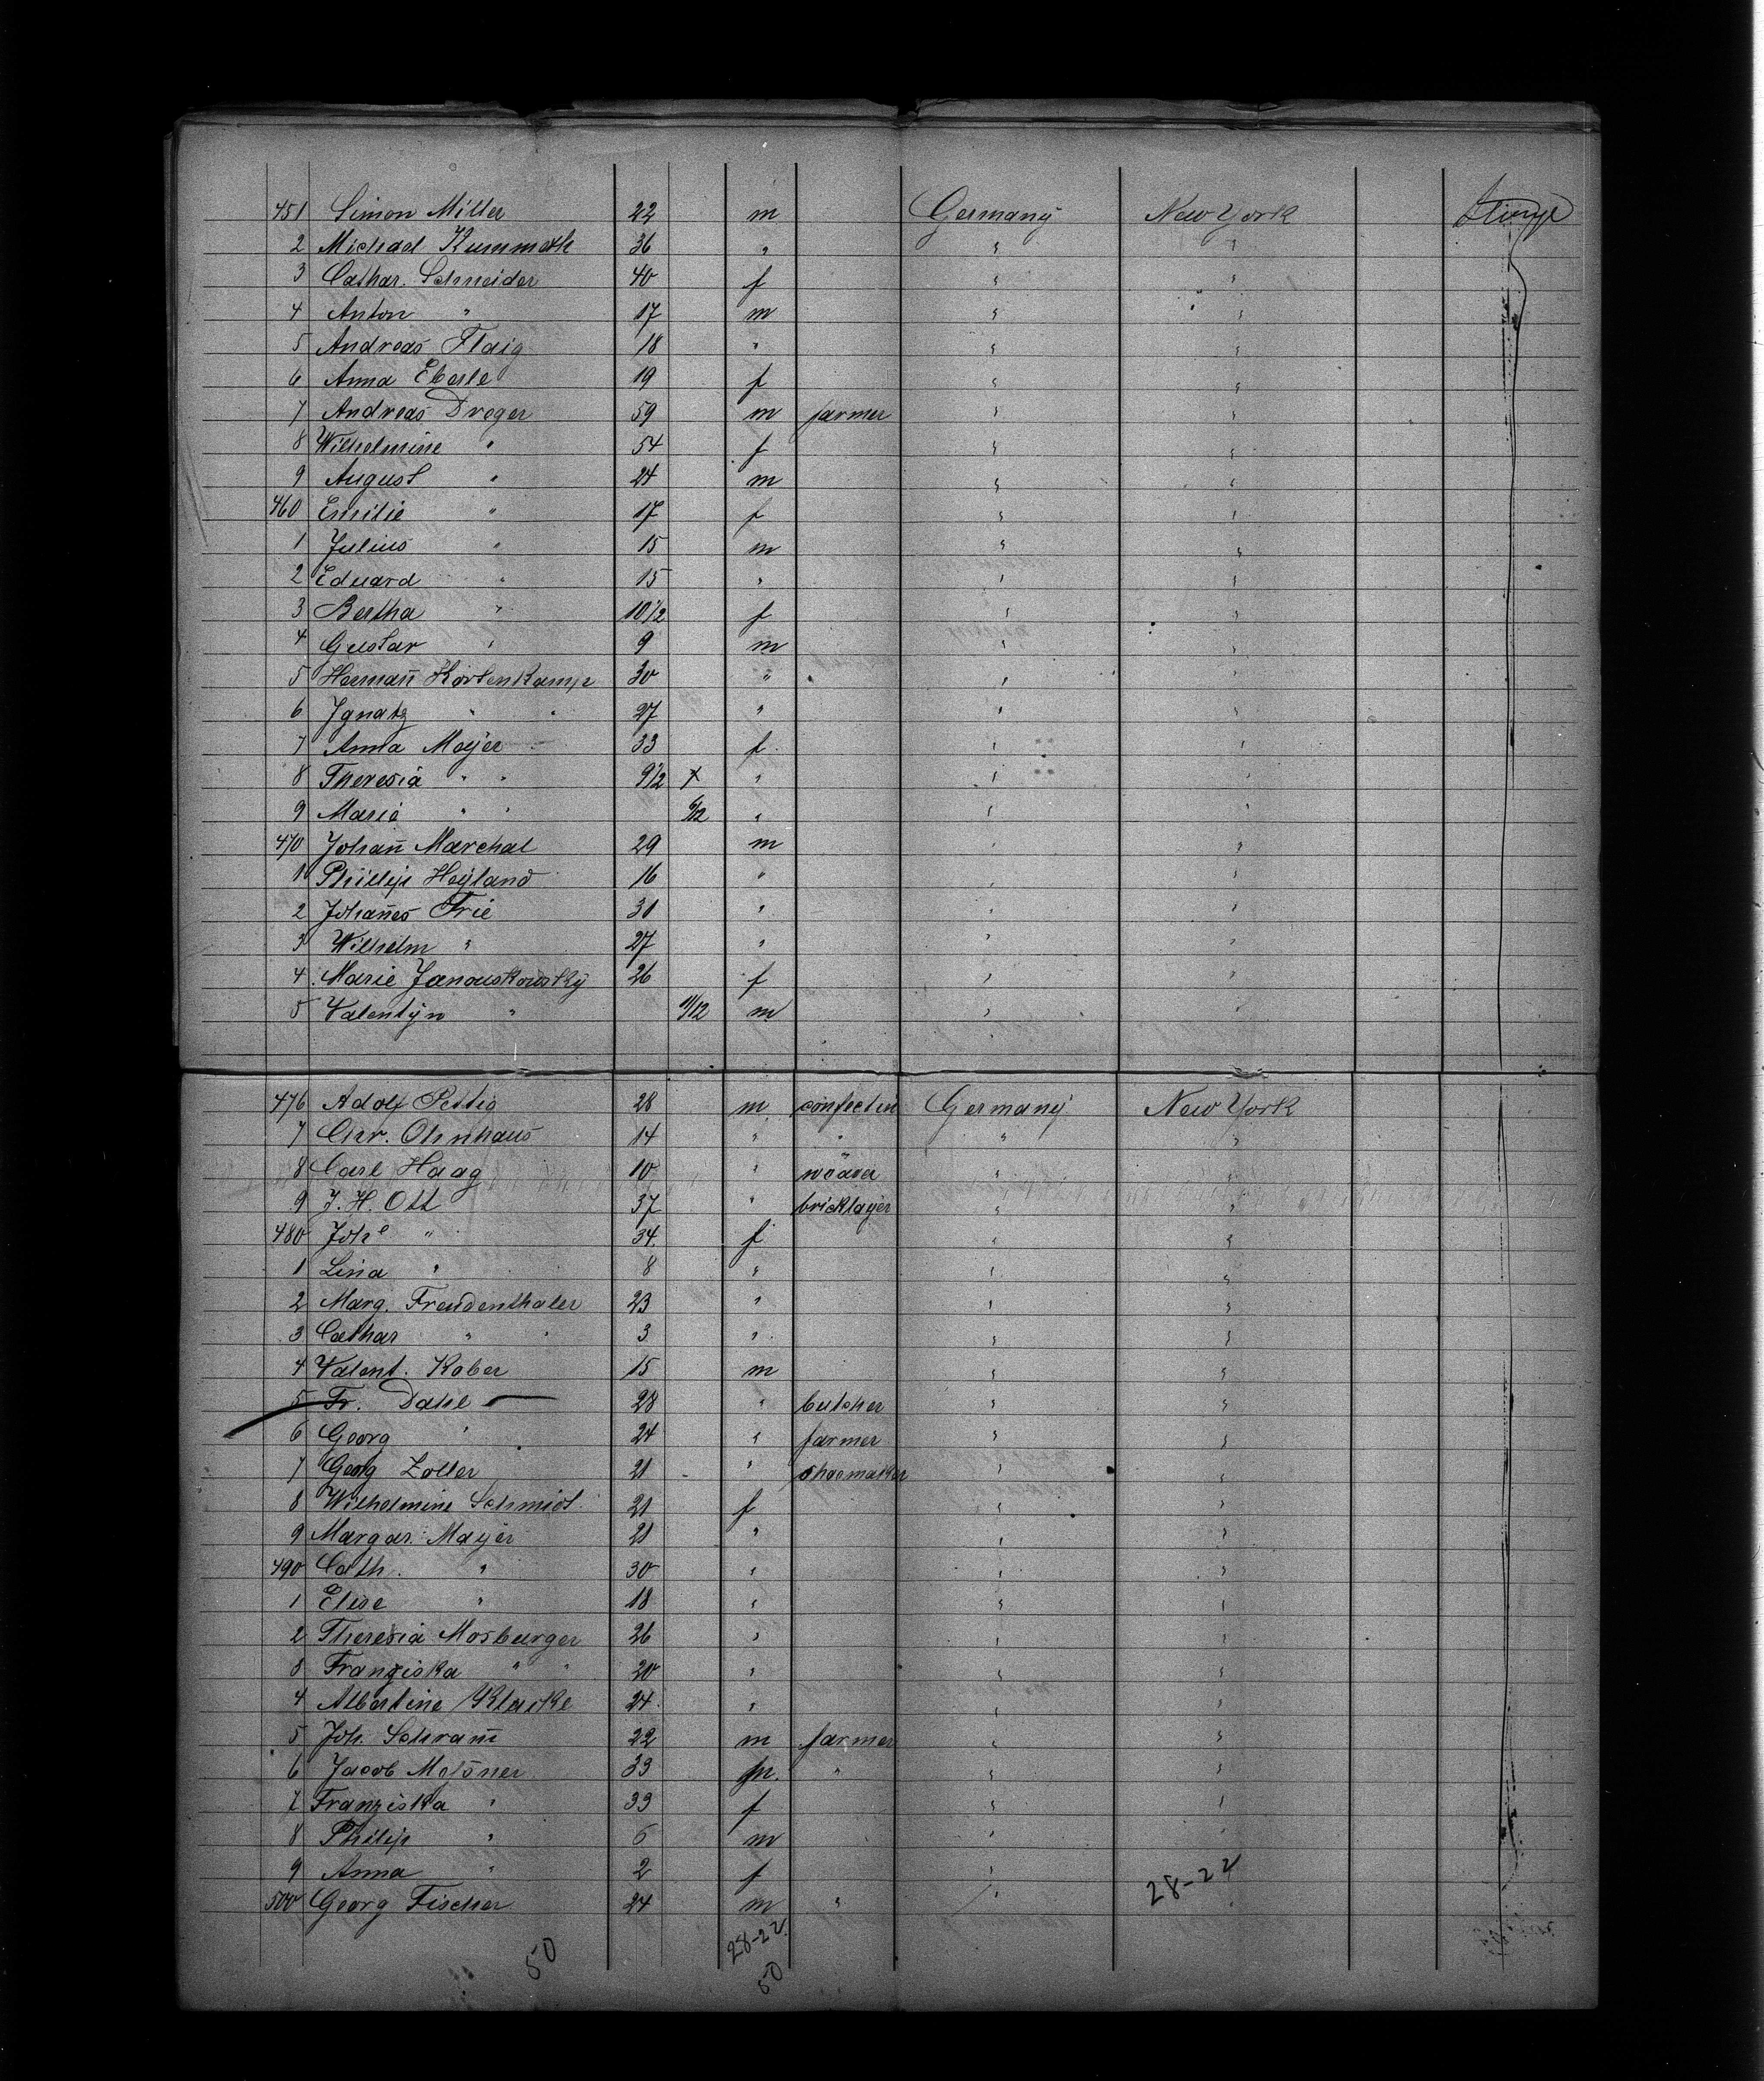 451 Simon Miller 22 m Germany New York
2 Michael Kummath 36 " " "
3 Cathar. Schneider 40 f " "
4 Anton " 17 m " "
5 Andreas Flaig 18 " " "
6 Anna Eberle 19 f " "
7 Andreas Dreger 59 m farmer " "
8 Wilhelmine " 54 f " "
9 August " 24 m " "
460 Emilie " 17 f " "
1 Julius " 15 m " "
2 Eduard " 15 " " "
3 Bertha " 10 1/2 f " "
4 Gustav " 9 m " "
5 Hermañ Kortenkamp 30 " " "
6 Ignatz " " 27 " " "
7 Anna Meÿer 33 f " "
8 Theresia " " 9 1/2 x " " "
9 Maria " " 6/12 " " "
470 Johañ Marchal 29 m " "
1 Phillip Heyland 16 " " "
2 Johañes Frie 31 " " "
3 Wilhelm " 27 " " "
4 Marie Janouskowsky 26 f " "
5 Valentÿn " 11/12 m " "
476 Adolf Pettig 28 m confectin Germany New York
7 Chr. Ohnhaus 14 " " " "
8 Carl Haag 10 " weaver " "
9 J. H. Ott 37 " bricklayer " "
480 Johe " 34 f " "
1 Lina " 8 " " "
2 Marg. Freudenthaler 23 " " "
3 Cathar " " 3 " " "
4 Valent. Kober 15 m " "
5 Fr. Dahl 28 " butcher " "
6 Georg " 24 " farmer " "
7 Georg Zoller 21 " shoemaker " "
8 Wilhelmine Schmidt 21 f " "
9 Margar. Mayer 21 " " "
490 Cath. " 30 " " "
1 Elise " 18 " " "
2 Theresia Mosburger 26 " " "
3 Franziska " " 20 " " "
4 Albertine 24 " " "
5 Joh. Schram̄ 22 m farmer " "
6 Jacob 33 m " " "
7 Franziska " 33 f " "
8 Philip " 6 m " "
9 Anna " 2 f " "
500 Georg Fischer 24 m " " "
28-22
28-22
50
50